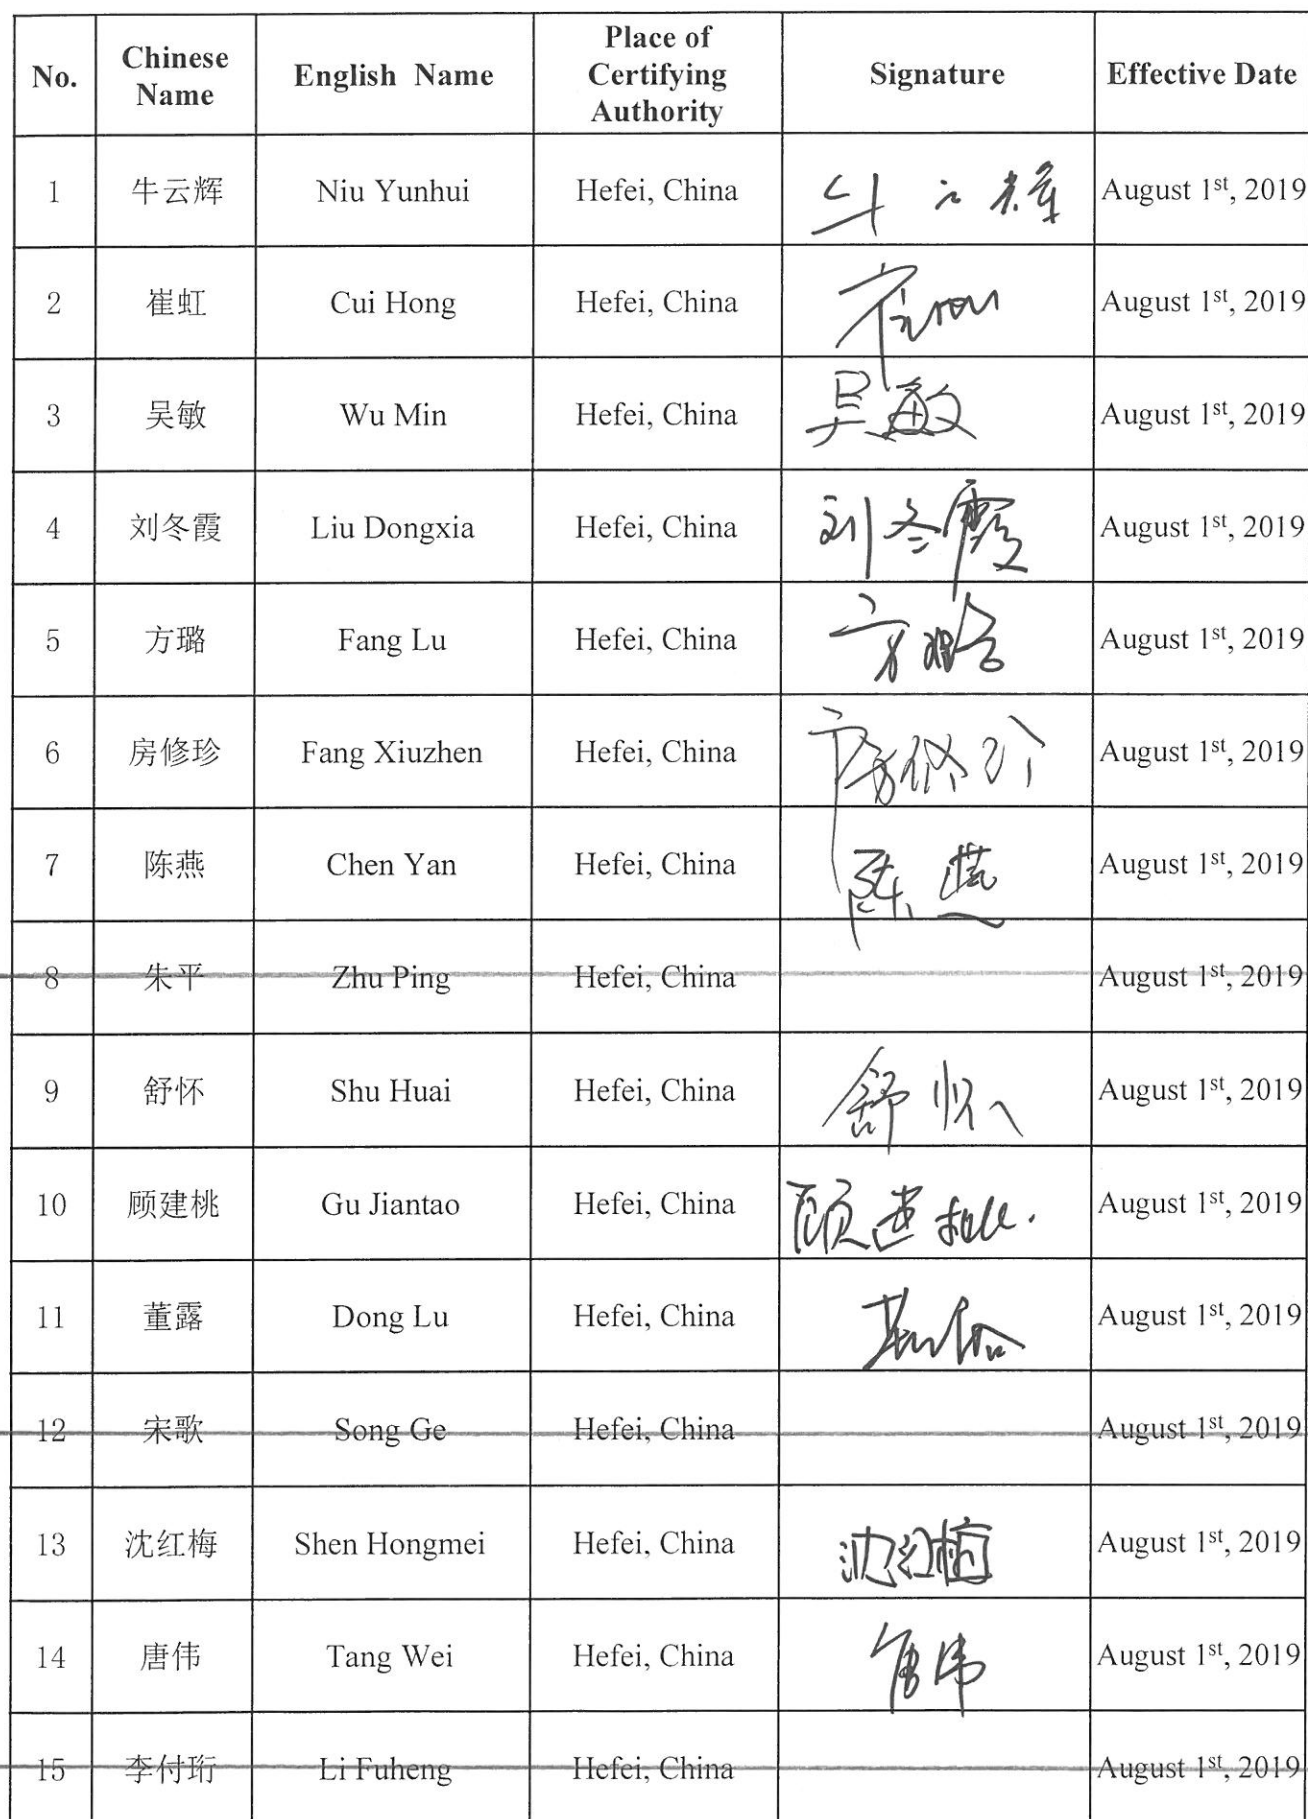 No. Chinese Name English Name Place of Certifying Authority Signature Effective Date
1 牛云辉 Niu Yunhui Hefei, China 牛云辉 August 1st, 2019
2 崔虹 Cui Hong Hefei, China August 1st, 2019
3 吴敏 Wu Min Hefei, China 吴敏 August 1st, 2019
4 刘冬霞 Liu Dongxia Hefei, China 刘冬霞 August 1st, 2019
5 方璐 Fang Lu Hefei, China 方璐 August 1st, 2019
6 房修珍 Fang Xiuzhen Hefei, China 房修珍 August 1st, 2019
7 陈燕 Chen Yan Hefei, China 陈燕 August 1st, 2019
8 朱平 Zhu Ping Hefei, China August 1st, 2019
9 舒怀 Shu Huai Hefei, China 舒怀 August 1st, 2019
10 顾建桃 Gu Jiantao Hefei, China 顾建桃 August 1st, 2019
11 董露 Dong Lu Hefei, China August 1st, 2019
12 宋歌 Song Ge Hefei, China August 1st, 2019
13 沈红梅 Shen Hongmei Hefei, China 沈红梅 August 1st, 2019
14 唐伟 Tang Wei Hefei, China 唐伟 August 1st, 2019
15 李付珩 Li Fuheng Hefei, China August 1st, 2019